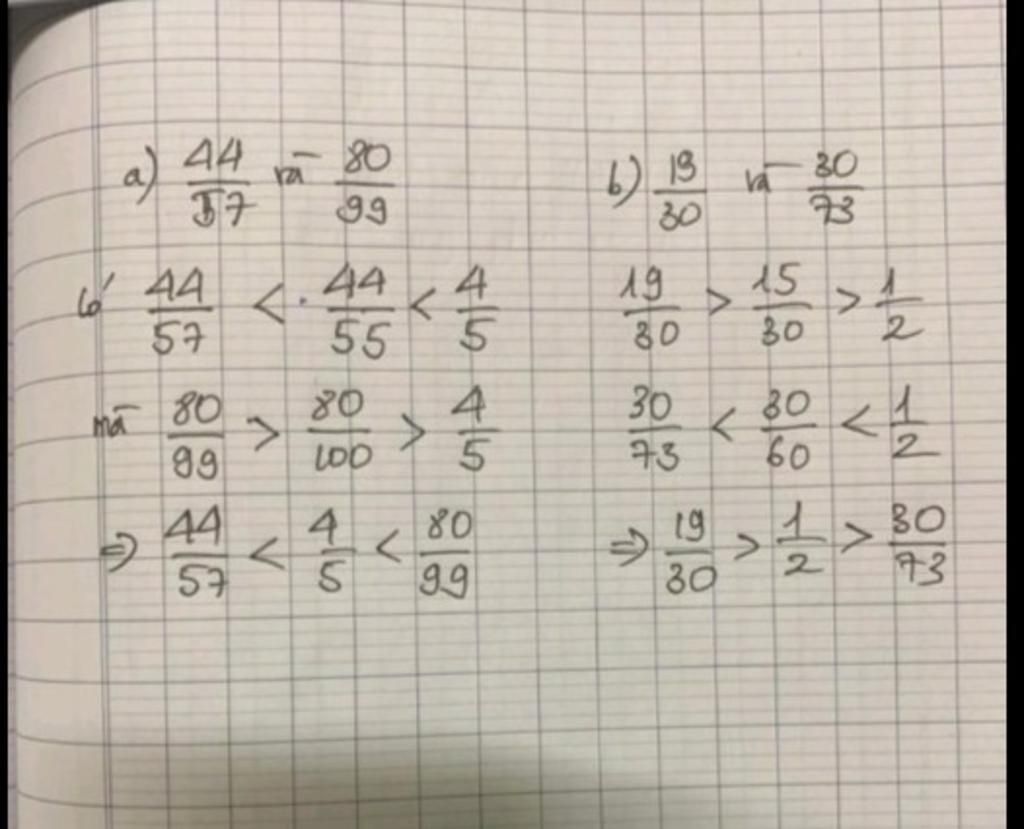 a) 44/57 và 80/99
b) 19/30 và 30/73
Có 44/57 < 44/55 < 4/5
19/30 > 15/30 > 1/2
mà 80/99 > 80/100 > 4/5
30/73 < 30/60 < 1/2
⇒ 44/57 < 4/5 < 80/99
⇒ 19/30 > 1/2 > 30/73